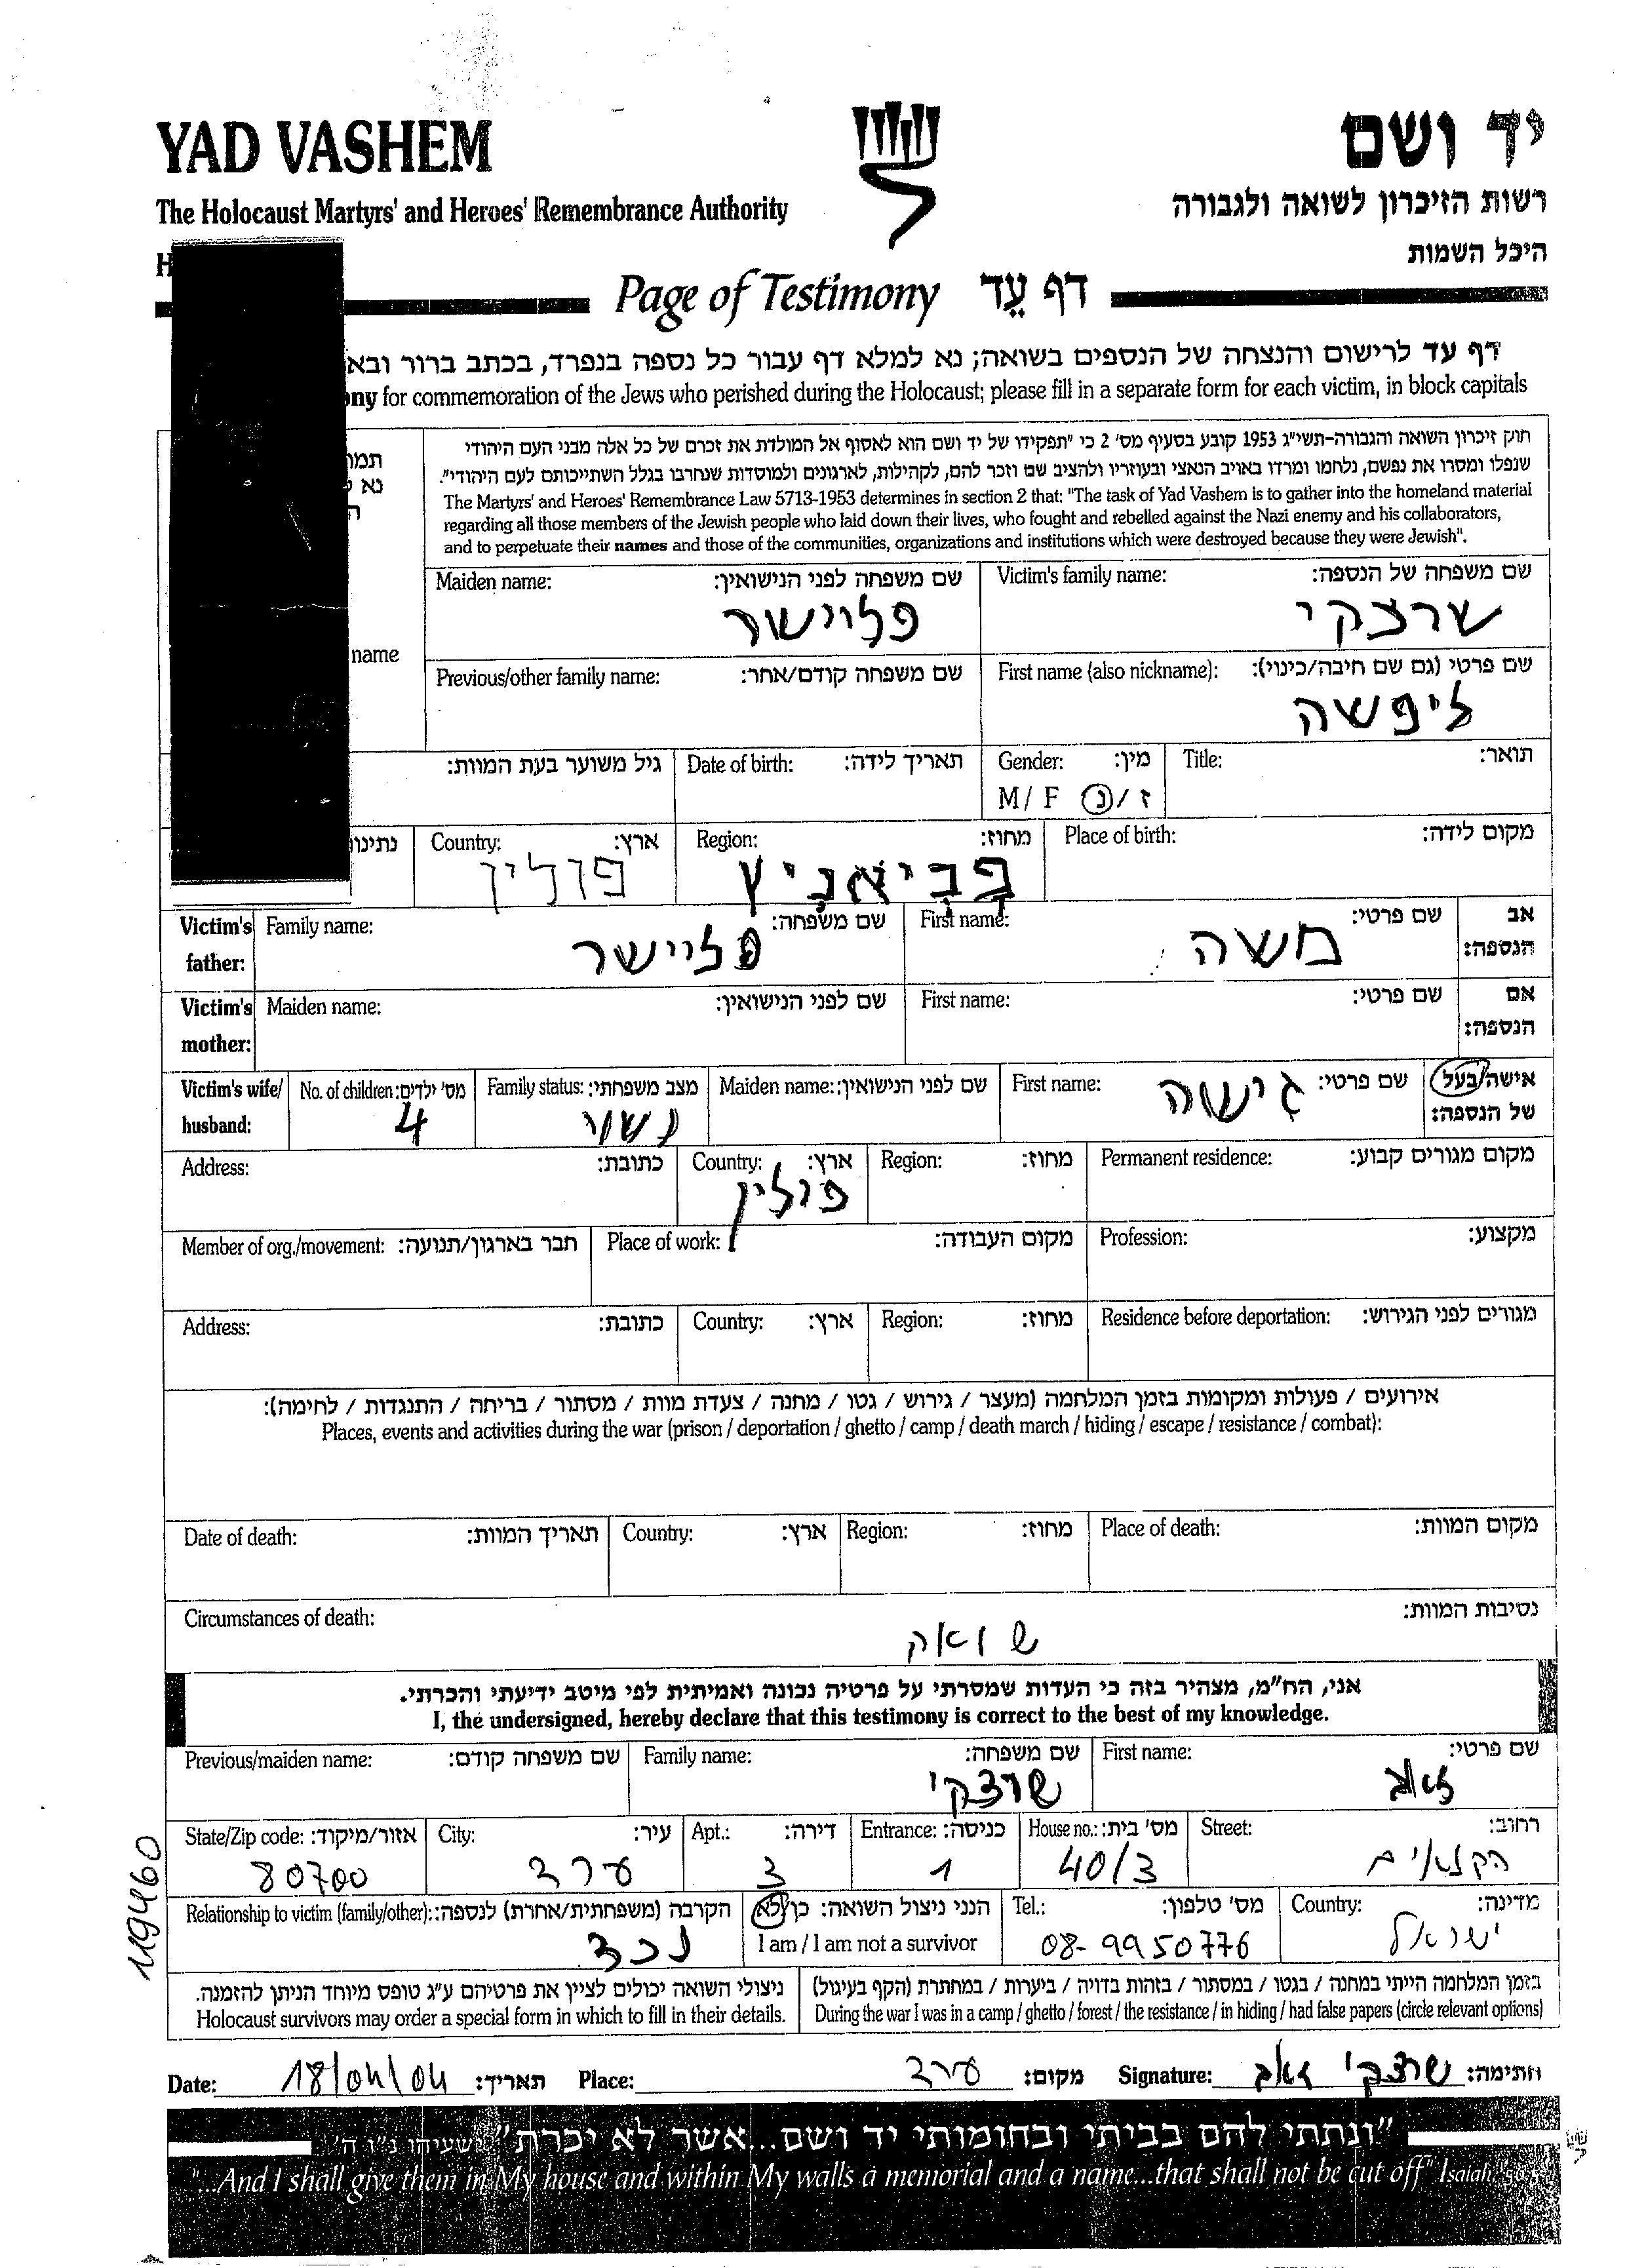 YAD VASHEM
יד ושם
The Holocaust Martyrs' and Heroes' Remembrance Authority
רשות הזיכרון לשואה ולגבורה
היכל השמות
H
Page of Testimony דף עֵד
דף עד לרישום והנצחה של הנספים בשואה; נא למלא דף עבור כל נספה בנפרד, בכתב ברור ובא
ony for commemoration of the Jews who perished during the Holocaust; please fill in a separate form for each victim, in block capitals
חוק זיכרון השואה והגבורה-תשי"ג 1953 קובע בסעיף מס' 2 כי "תפקידו של יד ושם הוא לאסוף אל המולדת את זכרם של כל אלה מבני העם היהודי
שנפלו ומסרו את נפשם, נלחמו ומרדו באויב הנאצי ובעוזריו ולהציב שם וזכר להם, לקהילות, לארגונים ולמוסדות שנחרבו בגלל השתייכותם לעם היהודי".
The Martyrs' and Heroes' Remembrance Law 5713-1953 determines in section 2 that: "The task of Yad Vashem is to gather into the homeland material
regarding all those members of the Jewish people who laid down their lives, who fought and rebelled against the Nazi enemy and his collaborators,
and to perpetuate their names and those of the communities, organizations and institutions which were destroyed because they were Jewish".
תמו
נא
ה
name
Victim's family name: שם משפחה של הנספה:
שרצקי
Maiden name: שם משפחה לפני הנישואין:
פלוישר
First name (also nickname): שם פרטי (גם שם חיבה/כינוי):
ליפשה
Previous/other family name: שם משפחה קודם/אחר:
Title: תואר:
Gender: מין:
M / F ז / נ
Date of birth: תאריך לידה:
גיל משוער בעת המוות:
Place of birth: מקום לידה:
Region: מחוז:
פביאניץ
Country: ארץ:
פולין
נתינו
Victim's father: אב הנספה:
First name: שם פרטי:
משה
Family name: שם משפחה:
פלוישר
Victim's mother: אם הנספה:
First name: שם פרטי:
Maiden name: שם לפני הנישואין:
Victim's wife/ husband: אישה/בעל של הנספה:
First name: שם פרטי:
גישה
Maiden name: שם לפני הנישואין:
Family status: מצב משפחתי:
נשוי
No. of children: מס' ילדים:
4
Permanent residence: מקום מגורים קבוע:
Region: מחוז:
Country: ארץ:
פולין
Address: כתובת:
Profession: מקצוע:
Place of work: מקום העבודה:
Member of org./movement: חבר בארגון/תנועה:
Residence before deportation: מגורים לפני הגירוש:
Region: מחוז:
Country: ארץ:
Address: כתובת:
אירועים / פעולות ומקומות בזמן המלחמה (מעצר / גירוש / גטו / מחנה / צעדת מוות / מסתור / בריחה / התנגדות / לחימה):
Places, events and activities during the war (prison / deportation / ghetto / camp / death march / hiding / escape / resistance / combat):
Place of death: מקום המוות:
Region: מחוז:
Country: ארץ:
Date of death: תאריך המוות:
Circumstances of death: נסיבות המוות:
שואה
אני, הח"מ, מצהיר בזה כי העדות שמסרתי על פרטיה נכונה ואמיתית לפי מיטב ידיעתי והכרתי.
I, the undersigned, hereby declare that this testimony is correct to the best of my knowledge.
First name: שם פרטי:
זאב
Family name: שם משפחה:
שרצקי
Previous/maiden name: שם משפחה קודם:
Street: רחוב:
הקנאים
House no.: מס' בית:
40/3
Entrance: כניסה:
1
Apt.: דירה:
3
City: עיר:
ערד
State/Zip code: אזור/מיקוד:
80700
Country: מדינה:
ישראל
Tel.: מס' טלפון:
08-9950776
הנני ניצול השואה: כן/לא
I am / I am not a survivor
Relationship to victim (family/other): הקרבה (משפחתית/אחרת) לנספה:
נכד
בזמן המלחמה הייתי במחנה / בגטו / במסתור / בזהות בדויה / ביערות / במחתרת (הקף בעיגול)
During the war I was in a camp / ghetto / forest / the resistance / in hiding / had false papers (circle relevant options)
ניצולי השואה יכולים לציין את פרטיהם ע"ג טופס מיוחד הניתן להזמנה.
Holocaust survivors may order a special form in which to fill in their details.
119460
Date: 18/04/04 תאריך: Place: ערד מקום: Signature: שרצקי זאב חתימה:
"ונתתי להם בביתי ובחומותי יד ושם...אשר לא יכרת" ישעיהו נ"ו ה'
"...And I shall give them in My house and within My walls a memorial and a name...that shall not be cut off" Isaiah